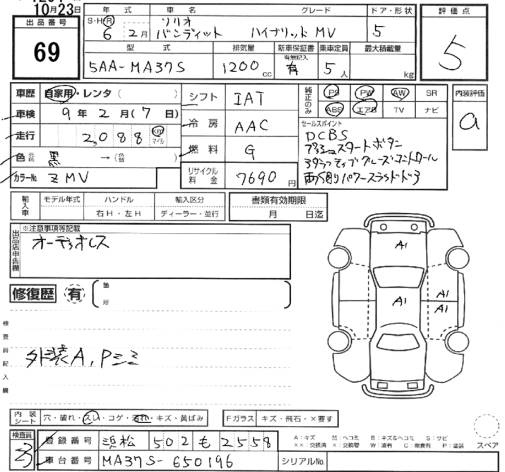 10月23日
出品番号
69
年式 車名 グレード ドア・形状
S・H・R 6年 2月 ソリオ バンディット ハイブリッド MV 5
型式 排気量 新車保証書 乗車定員 最大積載量
5AA-MA37S 1200cc 有 5人 kg
評価点
5
車歴 自家用・レンタ( )
車検 9年 2月 (7日)
走行 2,088 km マイル
色 黒 →
カラーNo ZMV
シフト IAT
冷房 AAC
燃料 G
リサイクル料金 7690円
純正のみ PS PW AW SR
ABS エアB TV ナビ
セールスポイント
DCBS
プッシュスタートボタン
アダプティブクルーズコントロール
両側パワースライドドア
内装評価
a
輸入車 モデル年式 ハンドル 輸入区分
右H・左H ディーラー・並行
書類有効期限
月 日迄
出品店申告欄
※注意事項等記載
オーディオレス
修復歴 有 箇所
検査員記入欄
外装A,Pミミ
A1
A1
A1
A1
内装シート 穴・破れ・スレ・コゲ・汚れ・キズ・黄ばみ
Fガラス キズ・飛石・×要す
検査員
登録番号 浜松 502 も 2558
車台番号 MA37S-650196
シリアルNo.
A:キズ U:ヘコミ B:キズ&ヘコミ S:サビ
××:交換済 X:交換要 W:波有 C:腐食有 P:塗装
スペア